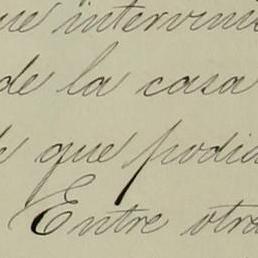 que intervini
de la casa
que podia
Entre otra